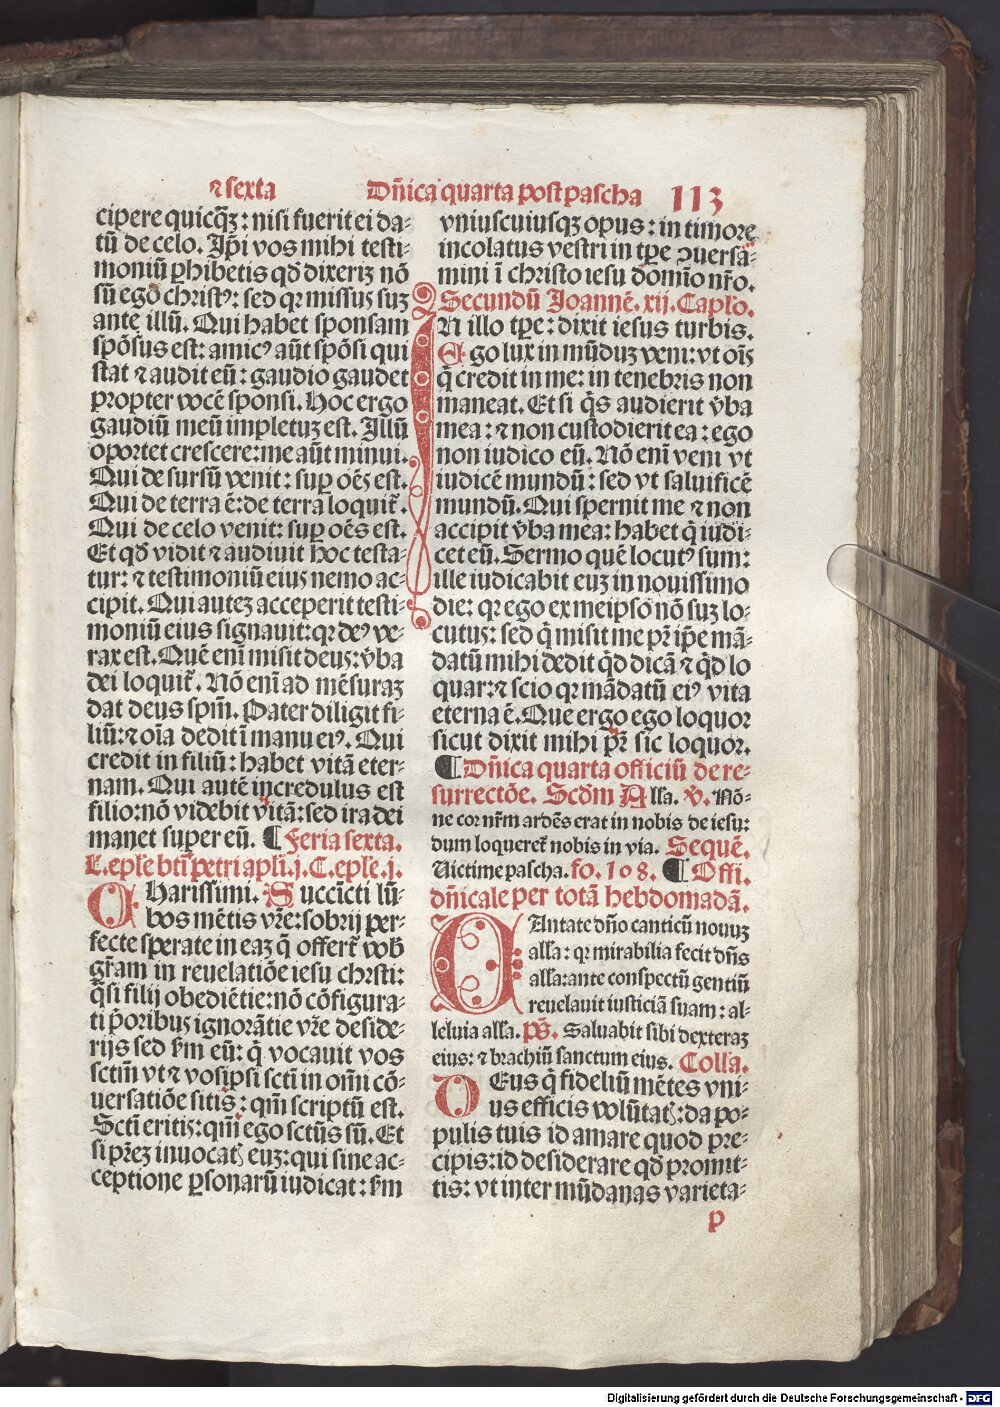 ⁊ sexta Dn̄ica quarta post pascha 113
cipere quicq̄ꝫ: nisi fuerit ei da-
tū de celo. Ip̄i vos mihi testi-
moniū ꝑhibetis qd̄ dixeriꝫ nō
sū egō christꝰ: sed qꝛ missus suꝫ
ante illū. Qui habet sponsam
spōsus est: amicꝰ aūt spōsi qui
stat ⁊ audit eū: gaudio gaudet
propter vocē sponsi. Hoc ergo
gaudiū meū impletuꝫ est. Illū
oportet crescere: me aūt minui.
Qui de sursū venit: suꝑ oēs est.
Qui de terra ē: de terra loquit̄.
Qui de celo venit: suꝑ oēs est.
Et qd̄ vidit ⁊ audiuit hoc testa-
tur: ⁊ testimoniū eius nemo ac-
cipit. Qui auteꝫ acceperit testi-
moniū eius signauit: qꝛ deꝰ ve-
rax est. Quē eni̅ misit deus: v̄ba
dei loquit̄. Nō eni̅ ad mēsuraꝫ
dat deus spm̄. Pater diligit fi-
liū: ⁊ oīa dedit ī manu eiꝰ. Qui
credit in filiū: habet vitā eter-
nam. Qui autē incredulus est
filio: nō videbit vitā: sed ira dei
manet super eū. ¶ Feria sexta.
L. eple btī petri apli. j. C. eple. j.
CHarissimi. Succīcti lū-
bos mētis vr̄e: sobrij per-
fecte sperate in eaꝫ q̄ offert̄ vob̄
gr̄am in reuelatiōe iesu chrsti:
q̄si filij obediētie: nō cōfigura-
ti p̄oribus ignorātie vr̄e deside-
rijs sed s̄m eū: q̄ vocauit vos
sctm̄ vt ⁊ vos ip̄si sctī in om̄i cō-
uersatiōe sitis: qm̄ scriptū est.
Sctī eritis: qm̄ ego sctūs sū. Et
si pr̄eꝫ inuocatꝭ euꝫ: qui sine ac-
ceptione ꝑsonarū iudicat: s̄m
vniuscuiusqꝫ opus: in timore
incolatus vestri in tp̄e ꝯuersā-
mini ī christo iesu domīo nr̄o.
Secundū Joannē. xii. Capl̄o.
IN illo tp̄e: dixit iesus turbis.
Ego lux in mūduꝫ veni: vt oīs
q̄ credit in me: in tenebris non
maneat. Et si q̄s audierit v̄ba
mea: ⁊ non custodierit ea: ego
non iudico eū. Nō eni̅ veni vt
iudicē mundū: sed vt saluificē
mundū. Qui spernit me ⁊ non
accipit v̄ba mea: habet q̄ iudi-
cet eū. Sermo quē locutꝰ sum:
ille iudicabit euꝫ in nouissimo
die: qꝛ ego ex meipsō nō suꝫ lo-
cutus: sed q̄ misit me pr̄ ip̄e mā-
datū mihi dedit q̄d dicā ⁊ q̄d lo
quar: ⁊ scio qꝛ mādatū eiꝰ vita
eterna ē. Que ergo ego loquor
sicut dixit mihi pr̄ sic loquor.
¶ Dn̄ica quarta officiū de re-
surrectōe. Scd̄m Alla. ℣. Nō-
ne cor nr̄m ardēs erat in nobis de iesu:
dum loqueret̄ nobis in via. Sequē.
Victime pascha. fo. 108. ¶ Offi.
dn̄icale per totā hebdomadā.
CAntate dn̄o canticū nouuꝫ
alla: qꝛ mirabilia fecit dn̄s
alla: ante conspectū gentiū
reuelauit iusticiā suam: al-
leluia alla. ps̄. Saluabit sibi dexteraꝫ
eius: ⁊ brachiū sanctum eius. Colla.
DEus q̄ fideliū mētes vni-
us efficis volūtatꝭ: da po-
pulis tuis id amare quod pre-
cipis: id desiderare qd̄ promit-
tis: vt inter mūdanas varieta-
p
Digitalisierung gefördert durch die Deutsche Forschungsgemeinschaft - DFG